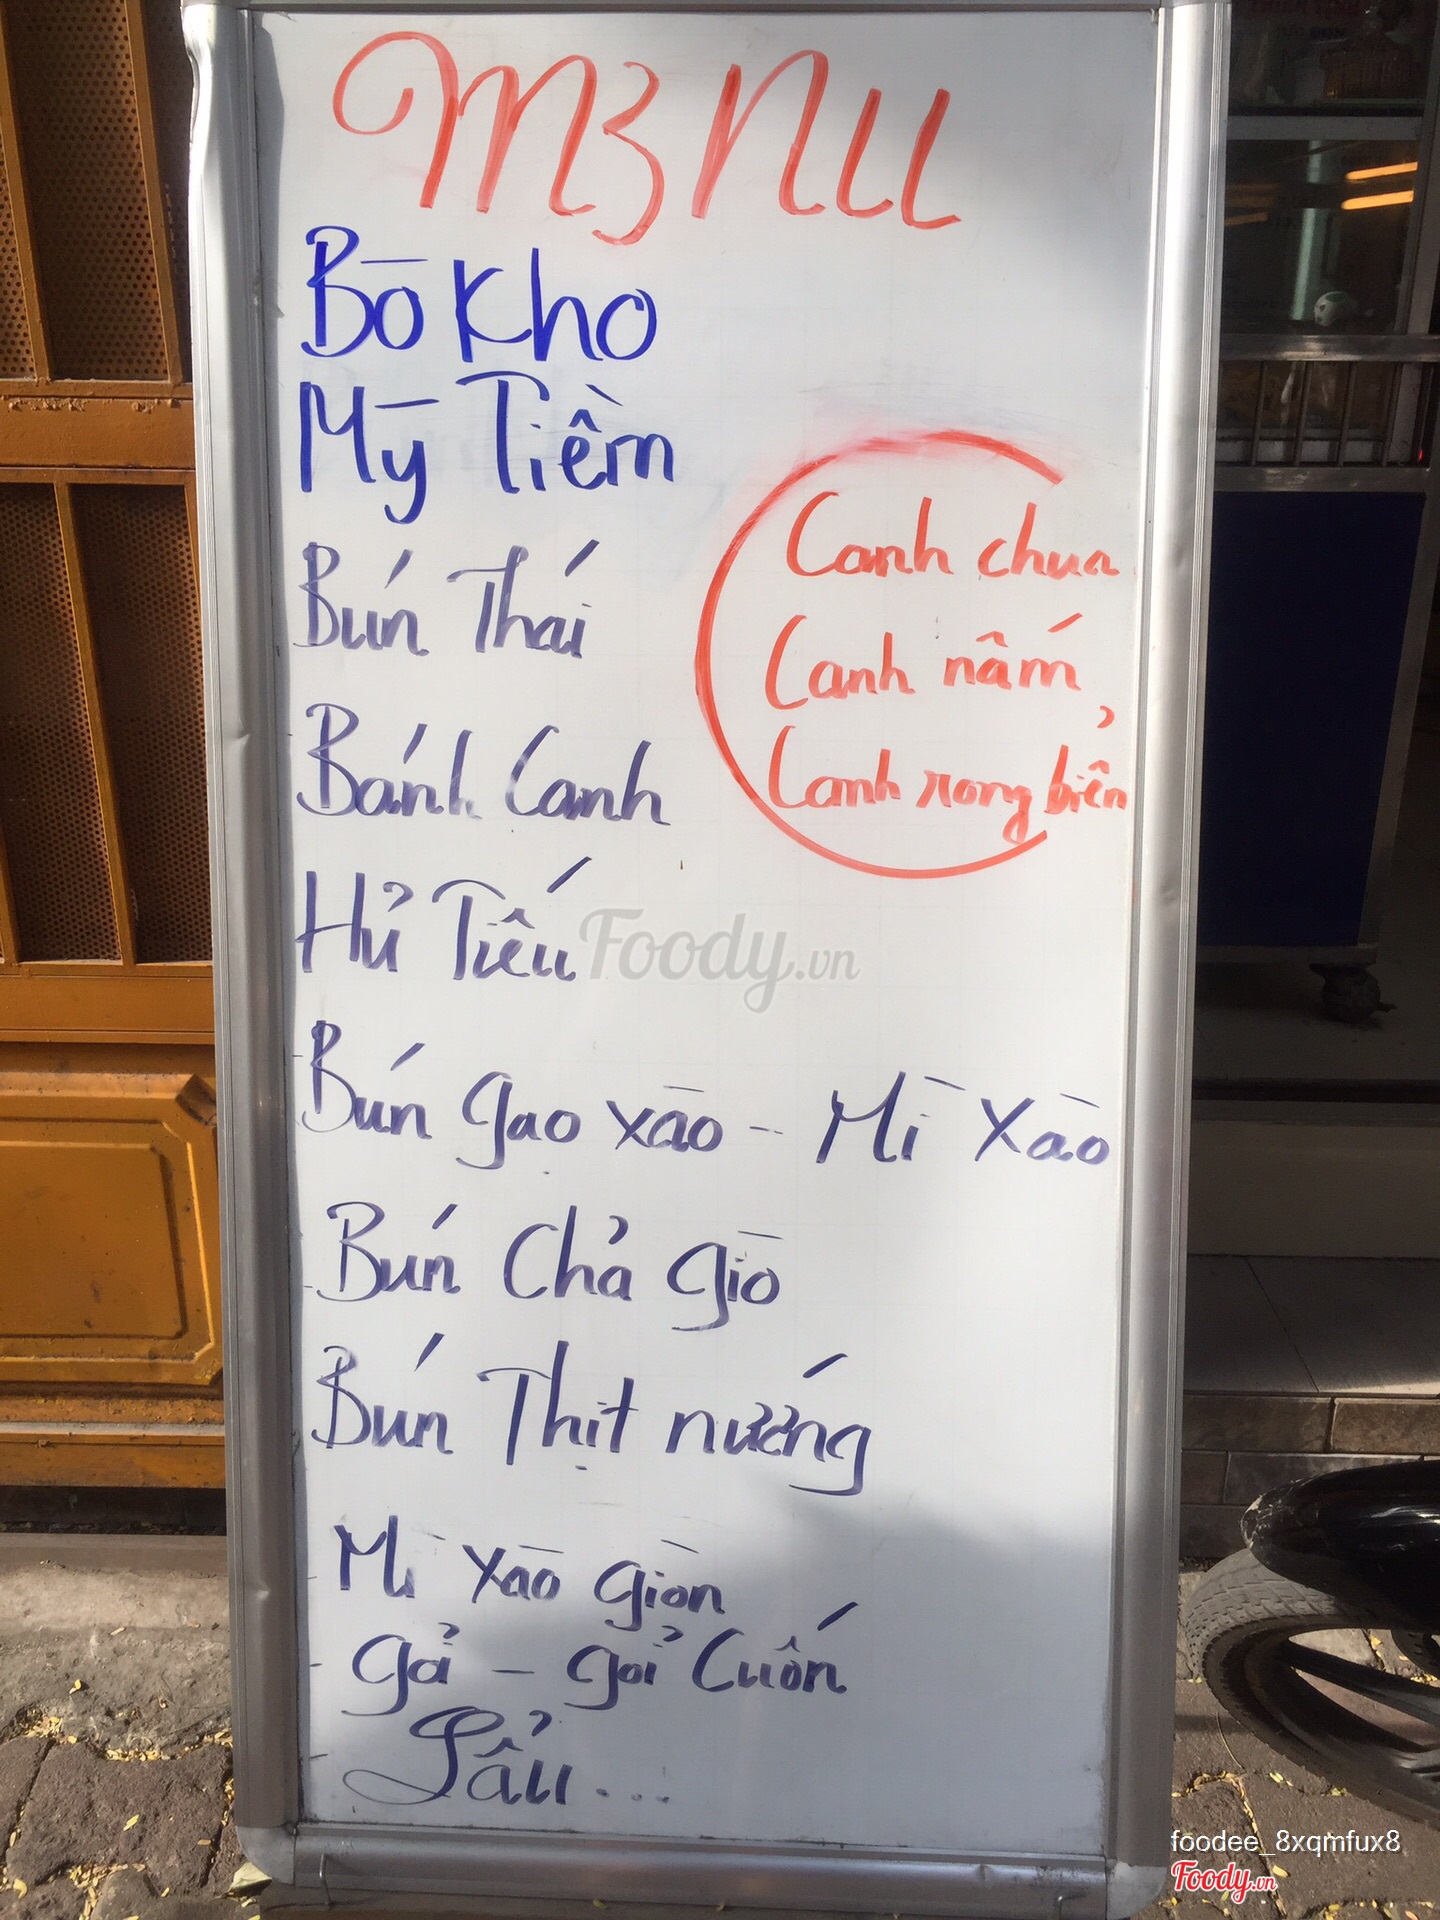 MENU
Bò Kho
Mỳ Tiềm
Bún Thái
Bánh Canh
Hủ Tiếu
Bún gạo xào - Mì Xào
Bún Chả giò
Bún Thịt nướng
Mì xào giòn
gỏi - gỏi Cuốn
Lẩu...
Canh chua
Canh nấm
Canh rong biển
Foody.vn
foodee_8xqmfux8
Foody.vn